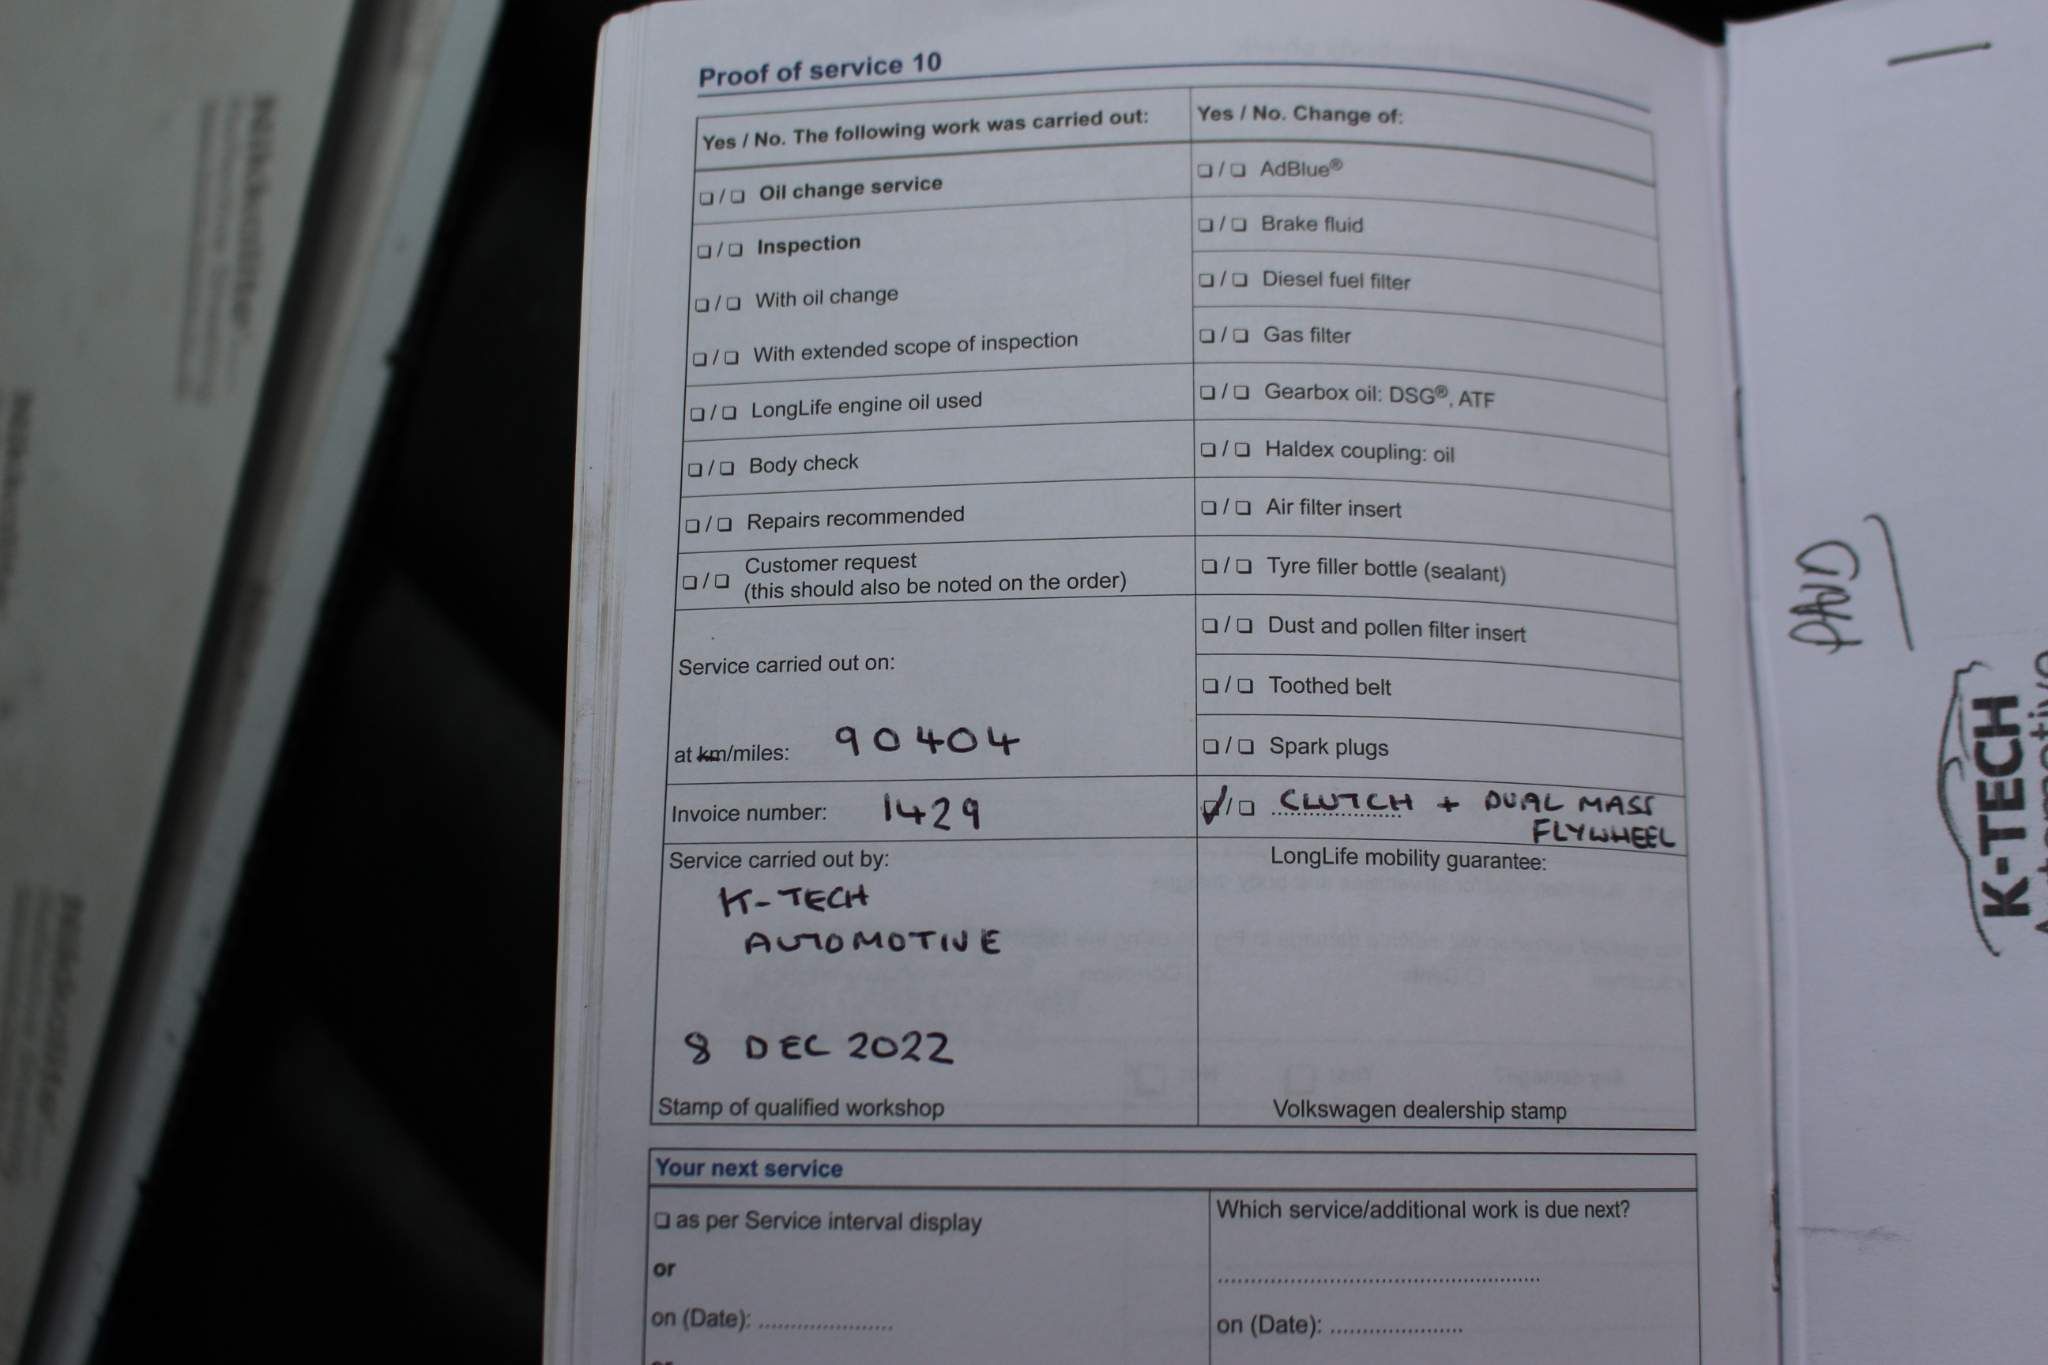 Proof of service 10
Yes / No. The following work was carried out:
❏ / ❏ Oil change service
❏ / ❏ Inspection
❏ / ❏ With oil change
❏ / ❏ With extended scope of inspection
❏ / ❏ LongLife engine oil used
❏ / ❏ Body check
❏ / ❏ Repairs recommended
❏ / ❏ Customer request
(this should also be noted on the order)
Service carried out on:
at km/miles: 90404
Invoice number: 1429
Service carried out by:
K-TECH
AUTOMOTIVE
8 DEC 2022
Stamp of qualified workshop
Yes / No. Change of:
❏ / ❏ AdBlue®
❏ / ❏ Brake fluid
❏ / ❏ Diesel fuel filter
❏ / ❏ Gas filter
❏ / ❏ Gearbox oil: DSG®, ATF
❏ / ❏ Haldex coupling: oil
❏ / ❏ Air filter insert
❏ / ❏ Tyre filler bottle (sealant)
❏ / ❏ Dust and pollen filter insert
❏ / ❏ Toothed belt
❏ / ❏ Spark plugs
✓ / ❏ CLUTCH + DUAL MASS
FLYWHEEL
LongLife mobility guarantee:
Volkswagen dealership stamp
Your next service
❏ as per Service interval display
or
on (Date): ......................
or
Which service/additional work is due next?
......................................................
on (Date): ......................
PAID
K-TECH
Automotive